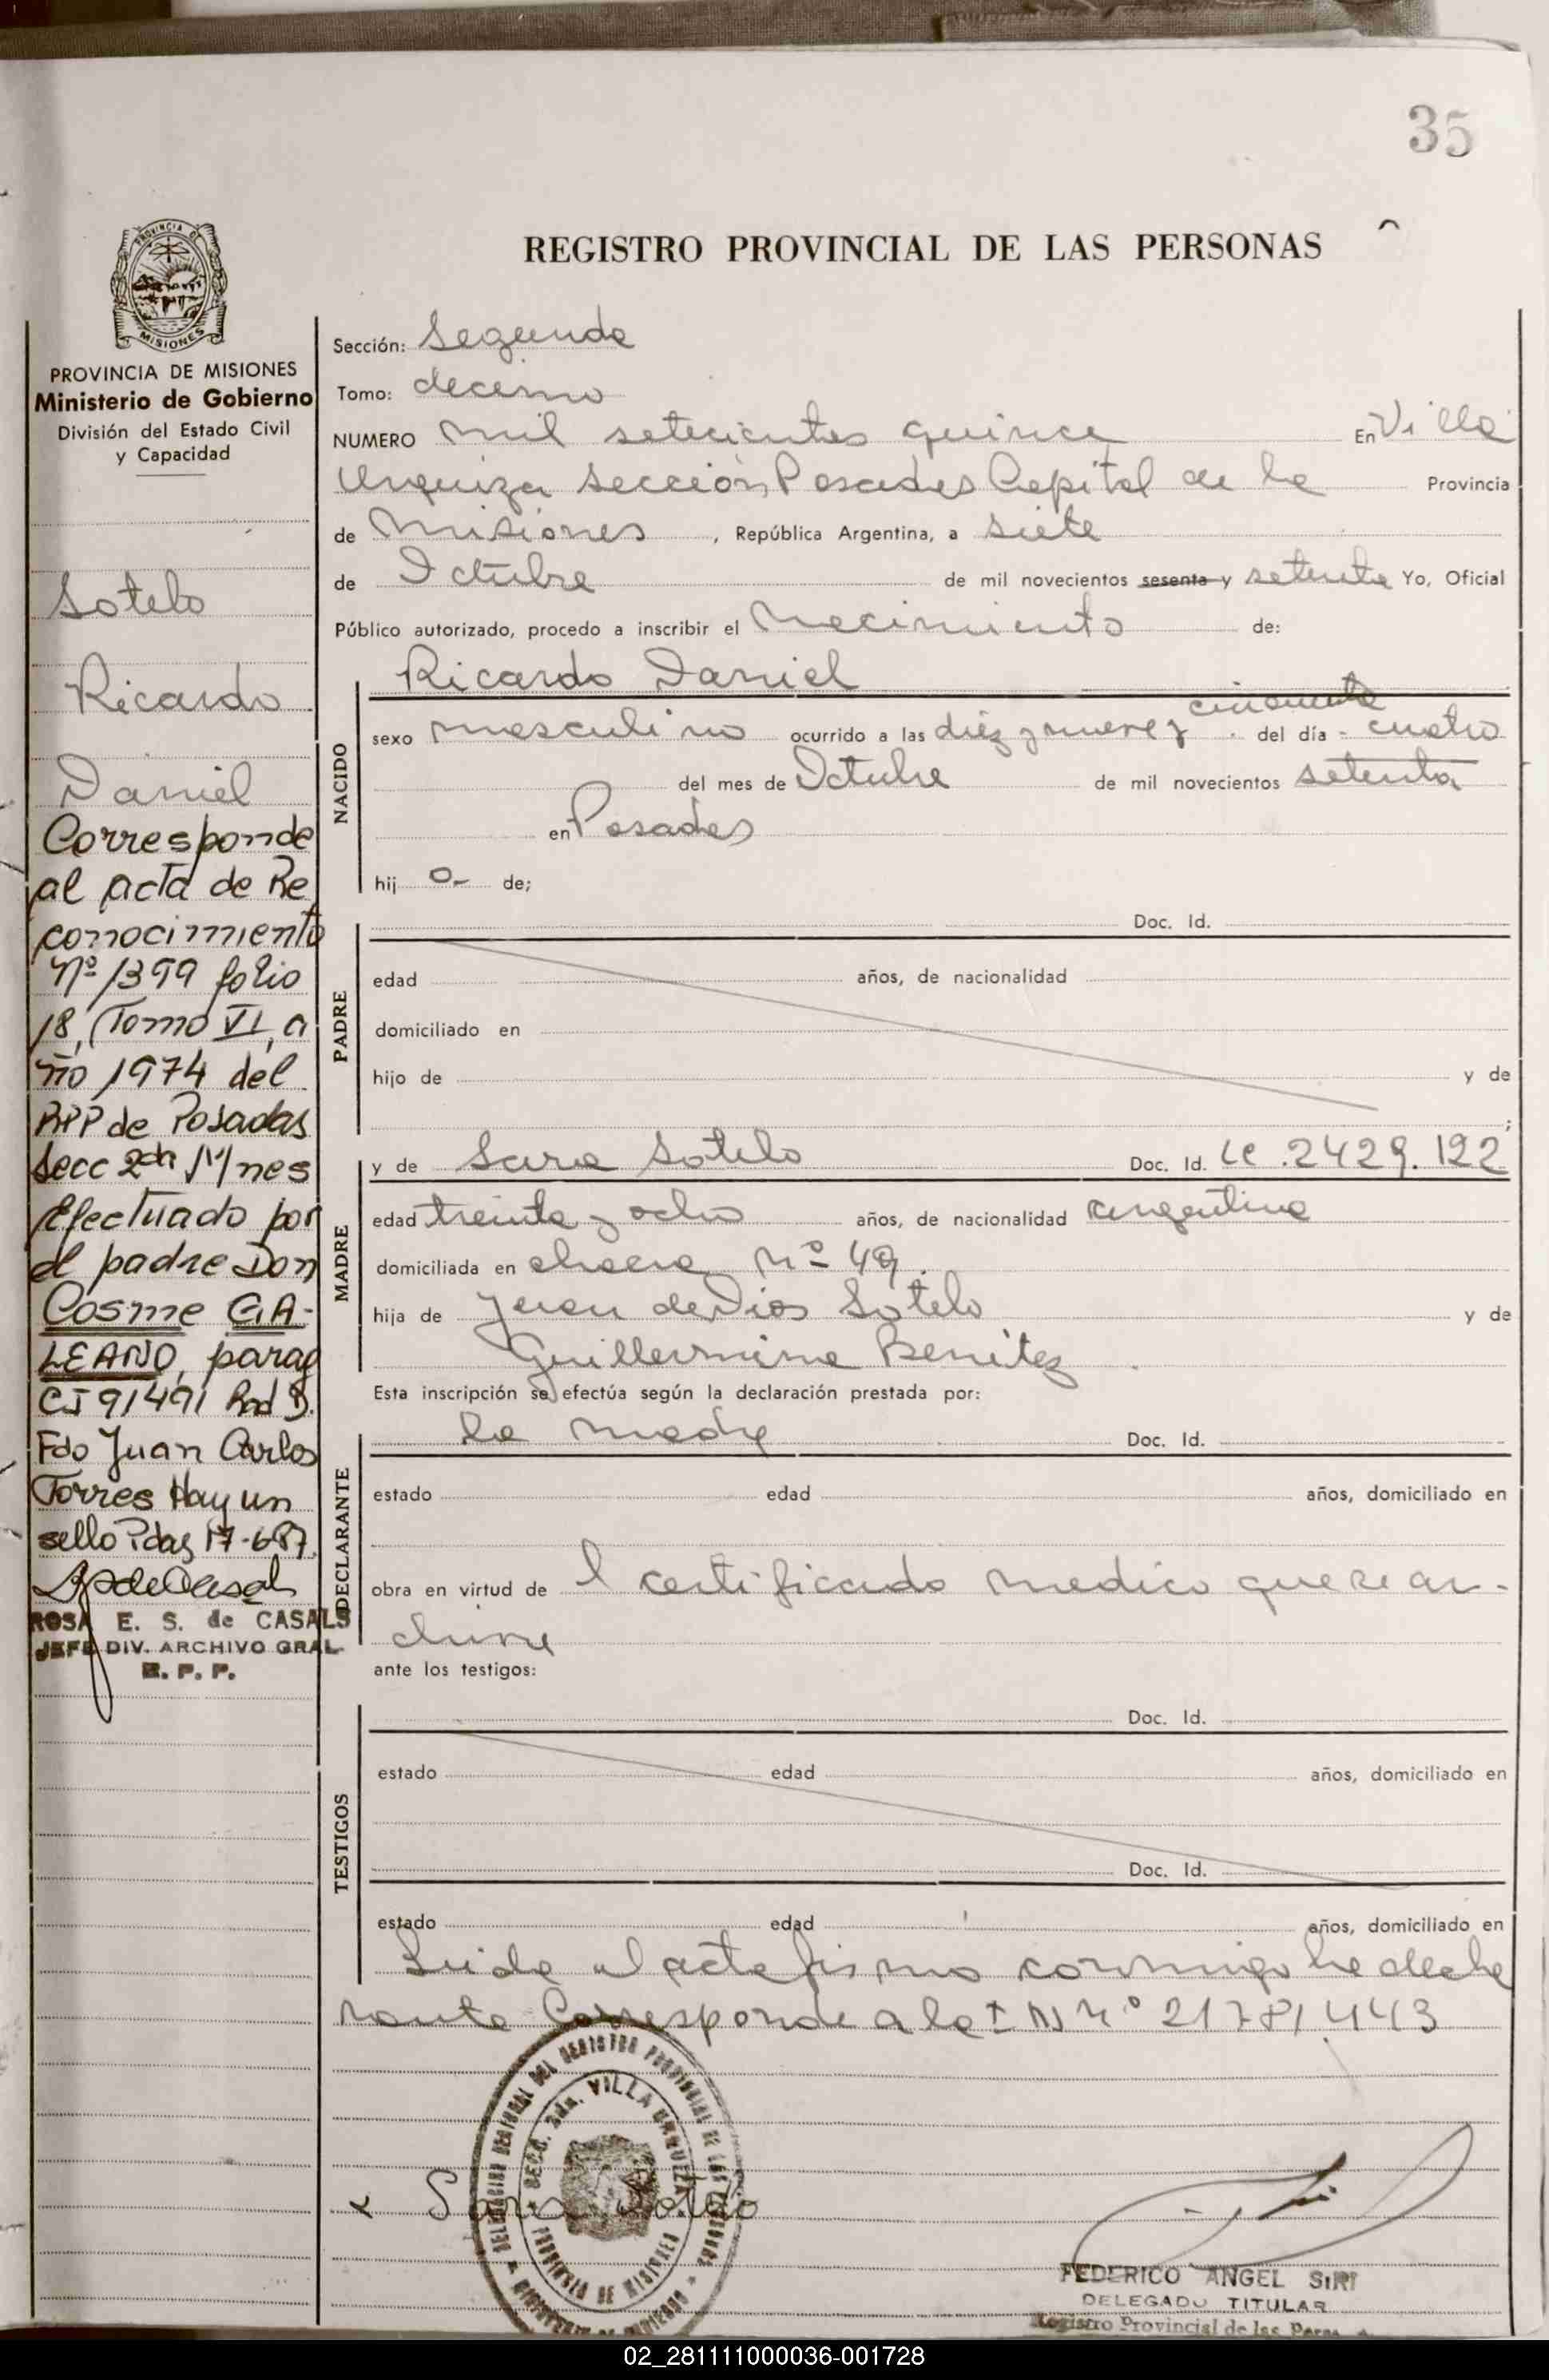 35
PROVINCIA DE
MISIONES
PROVINCIA DE MISIONES
Ministerio de Gobierno
División del Estado Civil
y Capacidad
Sotelo
Ricardo
Daniel
Corresponde
al acta de Re
conocimiento
Nº 1399 folio
18, Tomo VI, a
ño 1974 del
RPP de Posadas
Secc 2da Mnes
Efectuado por
el padre Don
Cosme GA-
LEANO, parag
CI 91491 Pad
Fdo Juan Carlos
Torres Hay un
sello Pdas 17-6-87.
ROSA E. S. de CASALS
JEFE DIV. ARCHIVO GRAL
R. P. P.
REGISTRO PROVINCIAL DE LAS PERSONAS
Sección: Segunda
Tomo: decimo
NUMERO mil setecientos quince En Villa
Urquiza Sección Posadas Capital de la Provincia
de Misiones, República Argentina, a siete
de Octubre de mil novecientos sesenta y setenta Yo, Oficial
Público autorizado, procedo a inscribir el Nacimiento de:
NACIDO
Ricardo Daniel
cincuenta
sexo masculino ocurrido a las diez y nueve y del día cuatro
del mes de Octubre de mil novecientos setenta
en Posadas
hij o- de;
PADRE
Doc. Id.
edad años, de nacionalidad
domiciliado en
hijo de y de
;
MADRE
y de Sara Sotelo Doc. Id. LC. 2429.122
edad treinta y ocho años, de nacionalidad argentina
domiciliada en chacra Nº 49.
hija de Juan de Dios Sotelo y de
Guillermina Benitez
Esta inscripción se efectúa según la declaración prestada por:
DECLARANTE
la madre Doc. Id.
estado edad años, domiciliado en
obra en virtud de l certificado medico que se ar-
chiva
ante los testigos:
TESTIGOS
Doc. Id.
estado edad años, domiciliado en
Doc. Id.
estado edad años, domiciliado en
Leida el acta firmo conmigo la decla
rante Corresponde a la I N Nº 21781443
x Sara Sotelo
SECC. 2da. VILLA URQUIZA
PROVINCIA DE MISIONES
FEDERICO ANGEL SIRI
DELEGADO TITULAR
Registro Provincial de las Pers
02_281111000036-001728